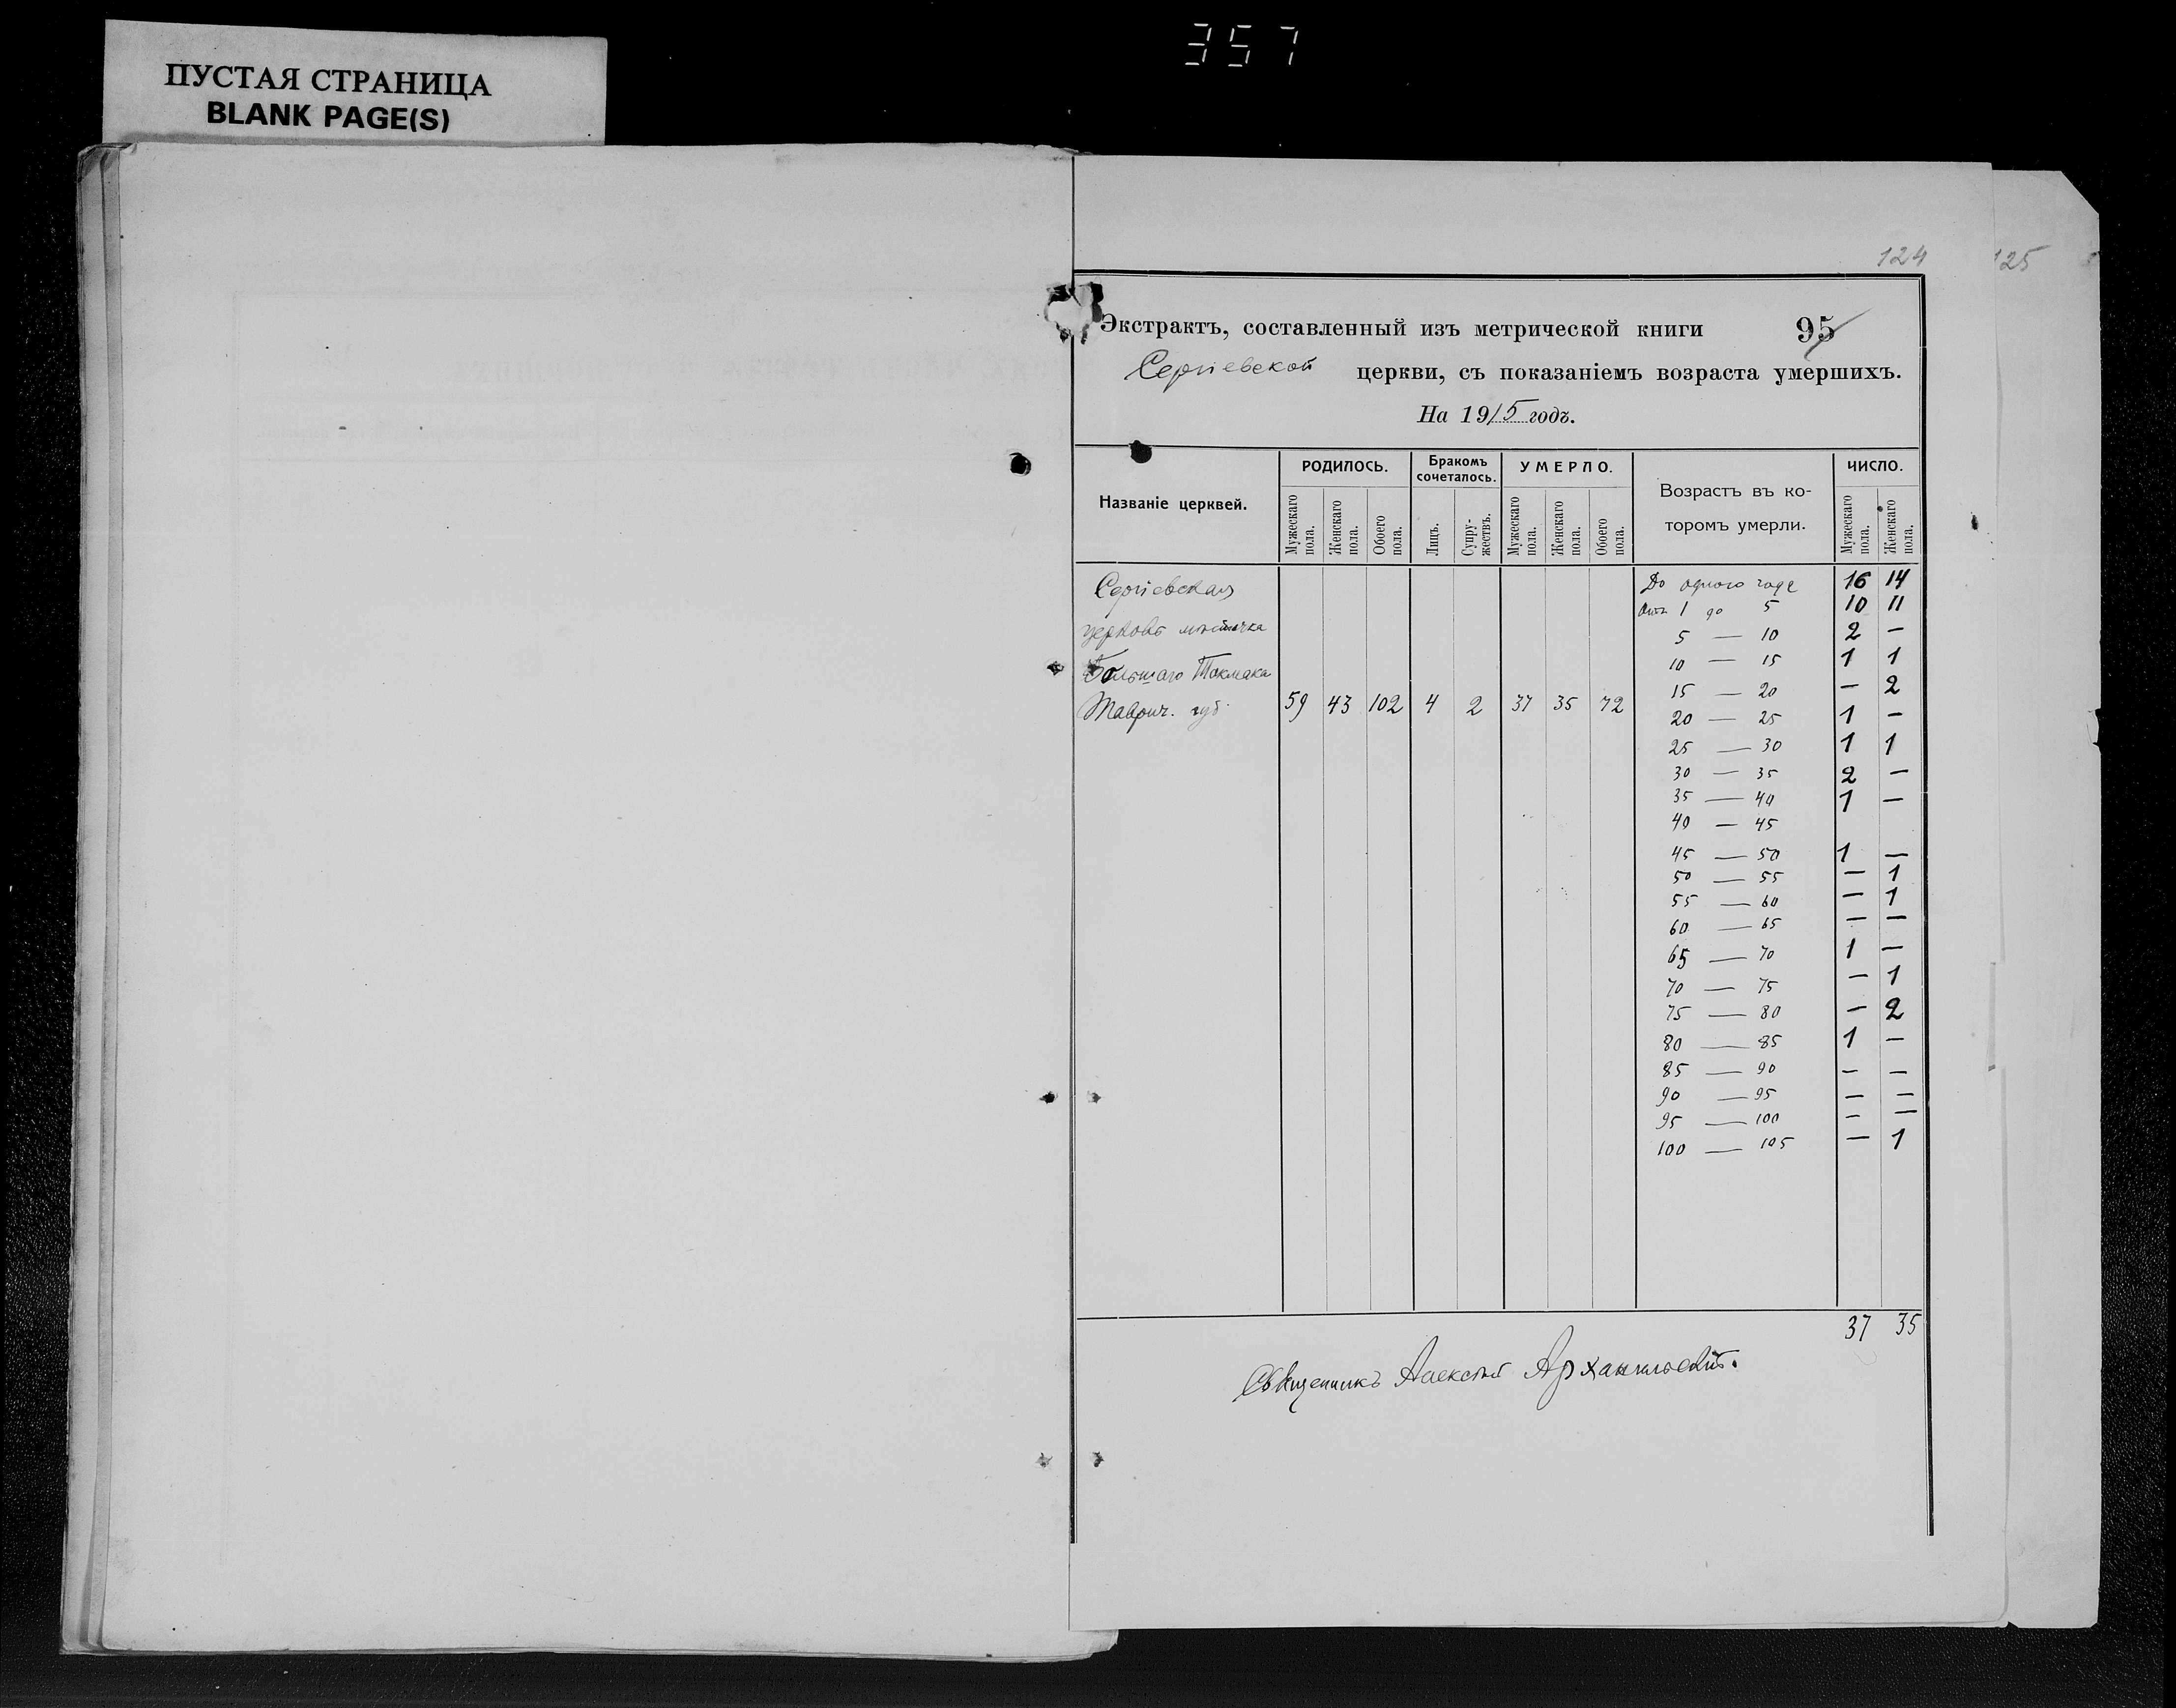 357
ПУСТАЯ СТРАНИЦА
BLANK PAGE(S)
124
125
Экстрактъ, составленный изъ метрической книги 95
Сергіевской церкви, съ показаніемъ возраста умершихъ.
На 1915 годъ.
Названіе церквей.
РОДИЛОСЬ.
Мужескаго пола.
Женскаго пола.
Обоего пола.
Бракомъ сочеталось.
Лицъ.
Супружествъ.
УМЕРЛО.
Мужескаго пола.
Женскаго пола.
Обоего пола.
Возрастъ въ которомъ умерли.
ЧИСЛО.
Мужескаго пола.
Женскаго пола.
Сергіевская
церковь мѣстечка
Большаго Токмака
Таврич. губ. 59 43 102 4 2 37 35 72
До одного года 16 14
Отъ 1 до 5 10 11
5 — 10 2 —
10 — 15 1 1
15 — 20 — 2
20 — 25 1 —
25 — 30 1 1
30 — 35 2 —
35 — 40 1 —
40 — 45
45 — 50 1 —
50 — 55 — 1
55 — 60 — 1
60 — 65 — —
65 — 70 1 —
70 — 75 — 1
75 — 80 — 2
80 — 85 1 —
85 — 90 — —
90 — 95 — —
95 — 100 — —
100 — 105 — 1
37 35
Священникъ Алексѣй Архангельскій.